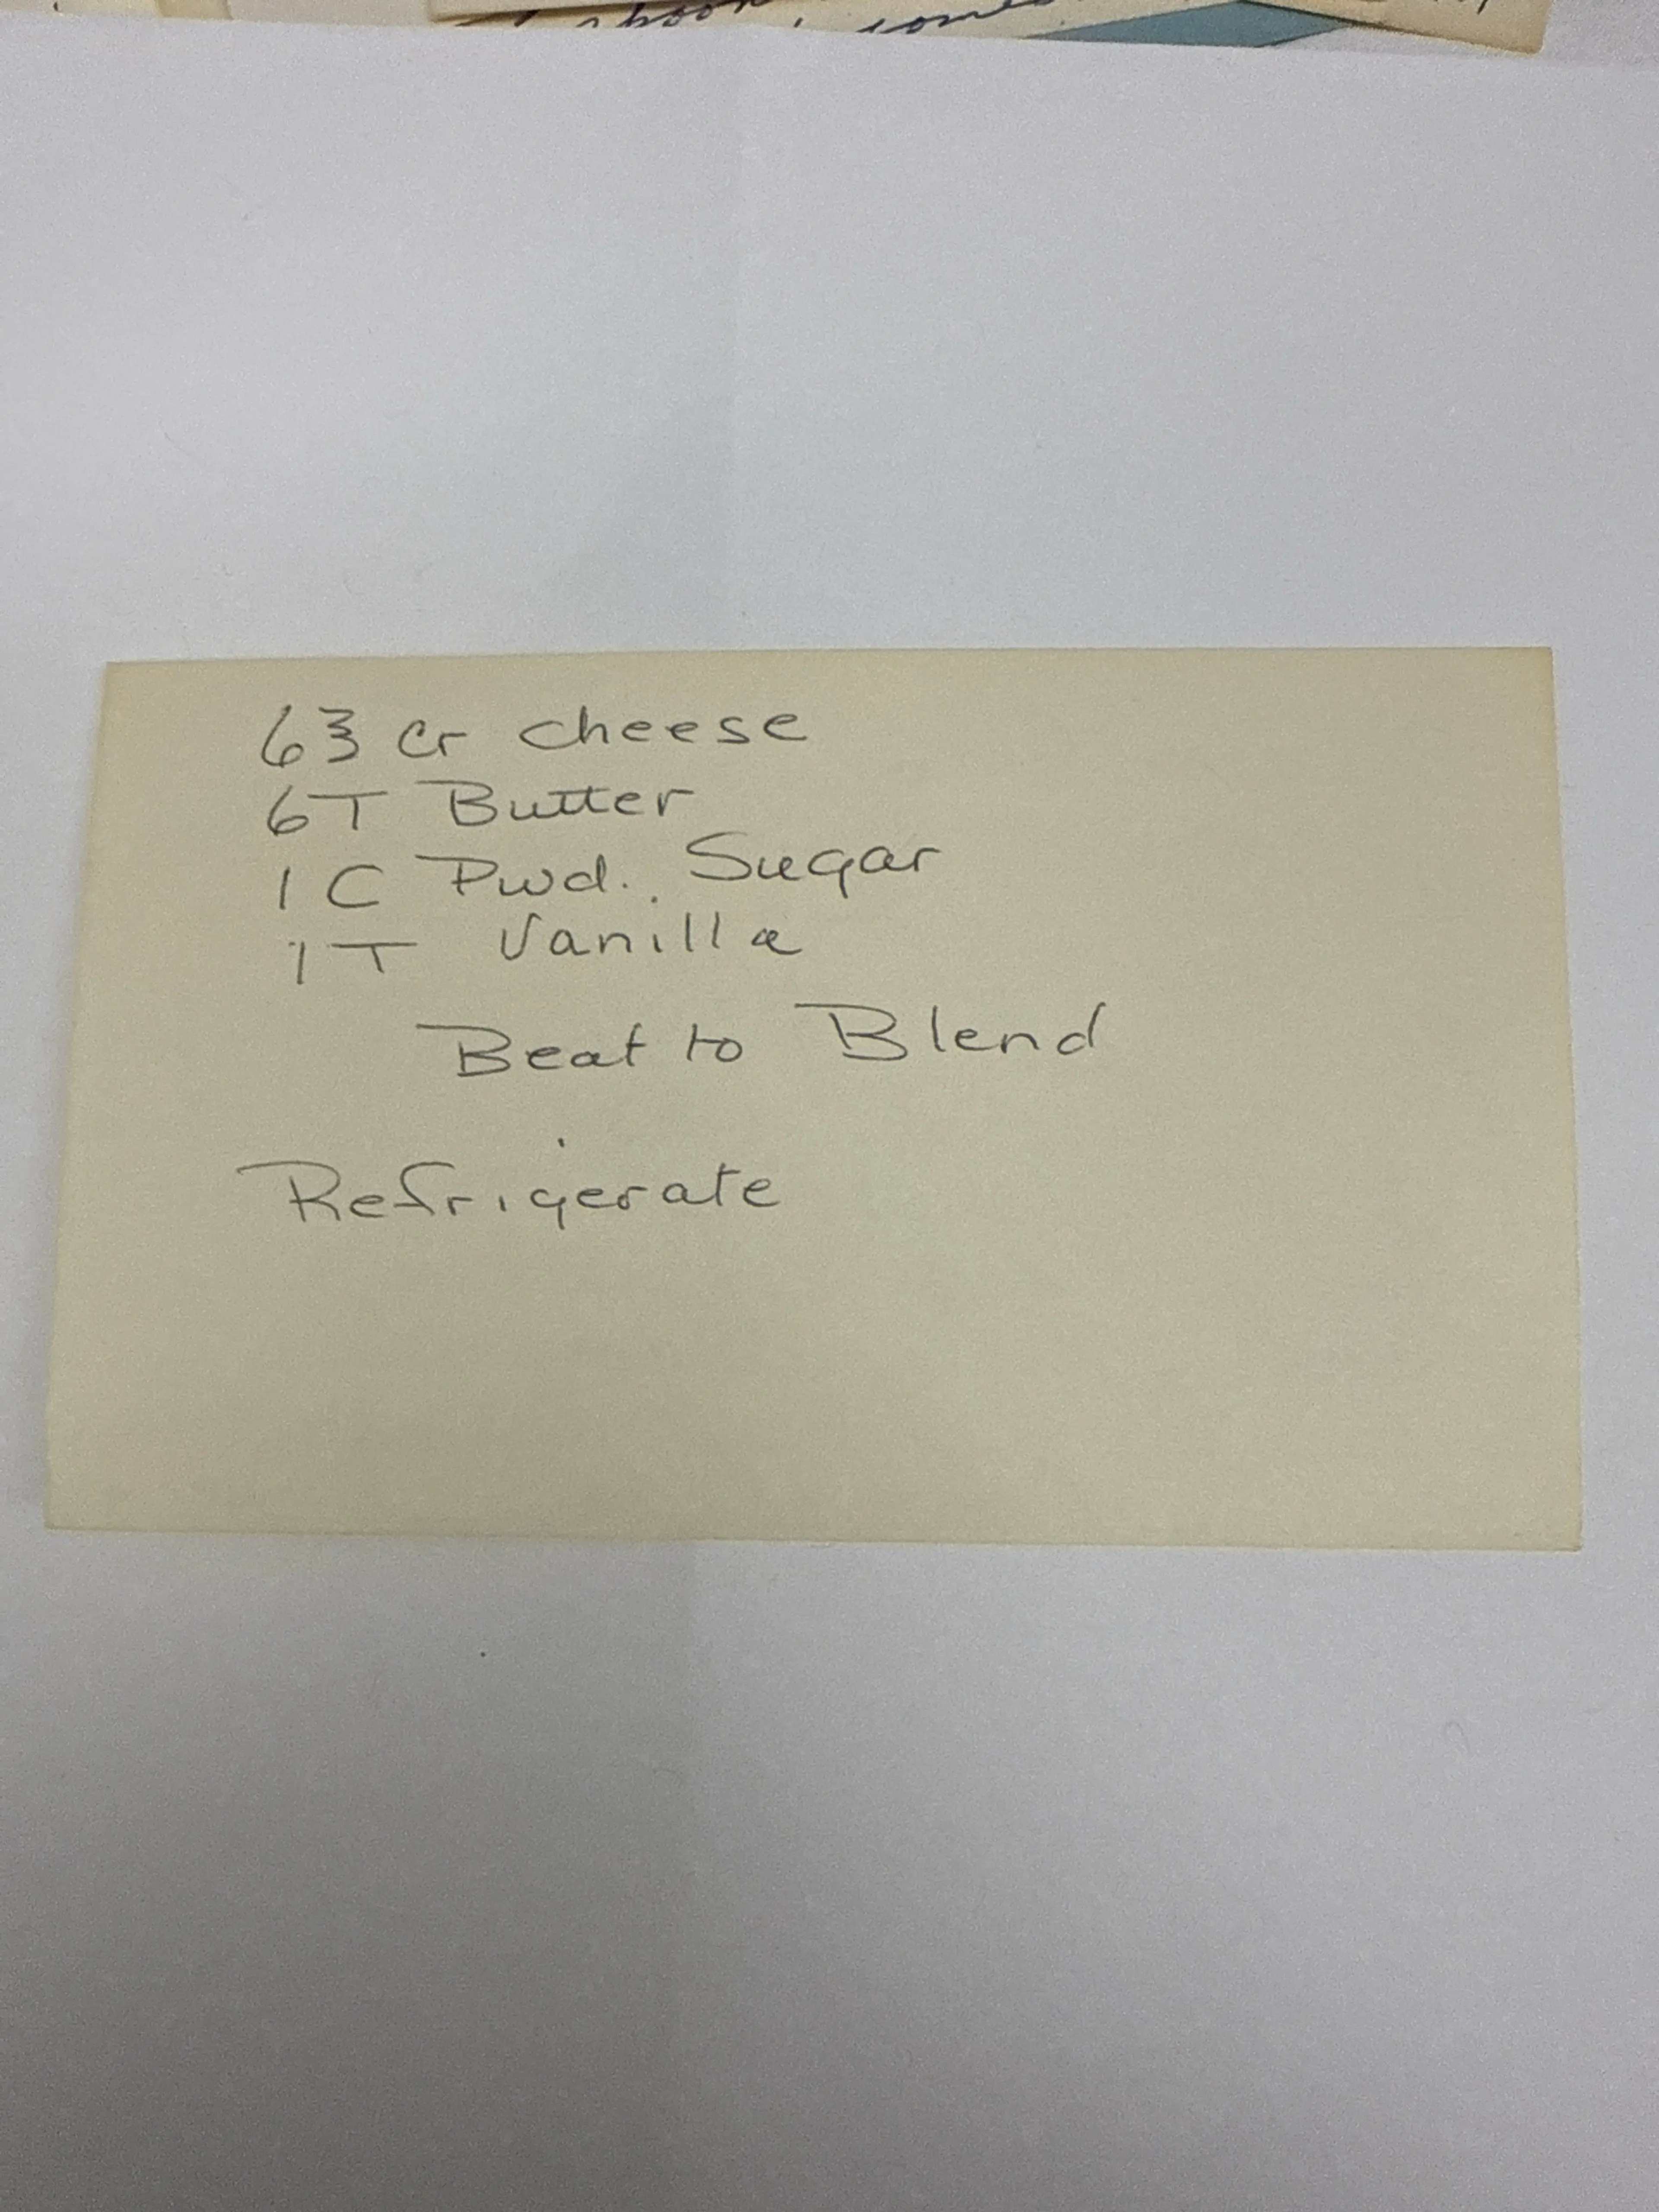 spoon
63 Cr cheese
6T Butter
1 C Pwd. Sugar
1T Vanilla
Beat to Blend
Refrigerate